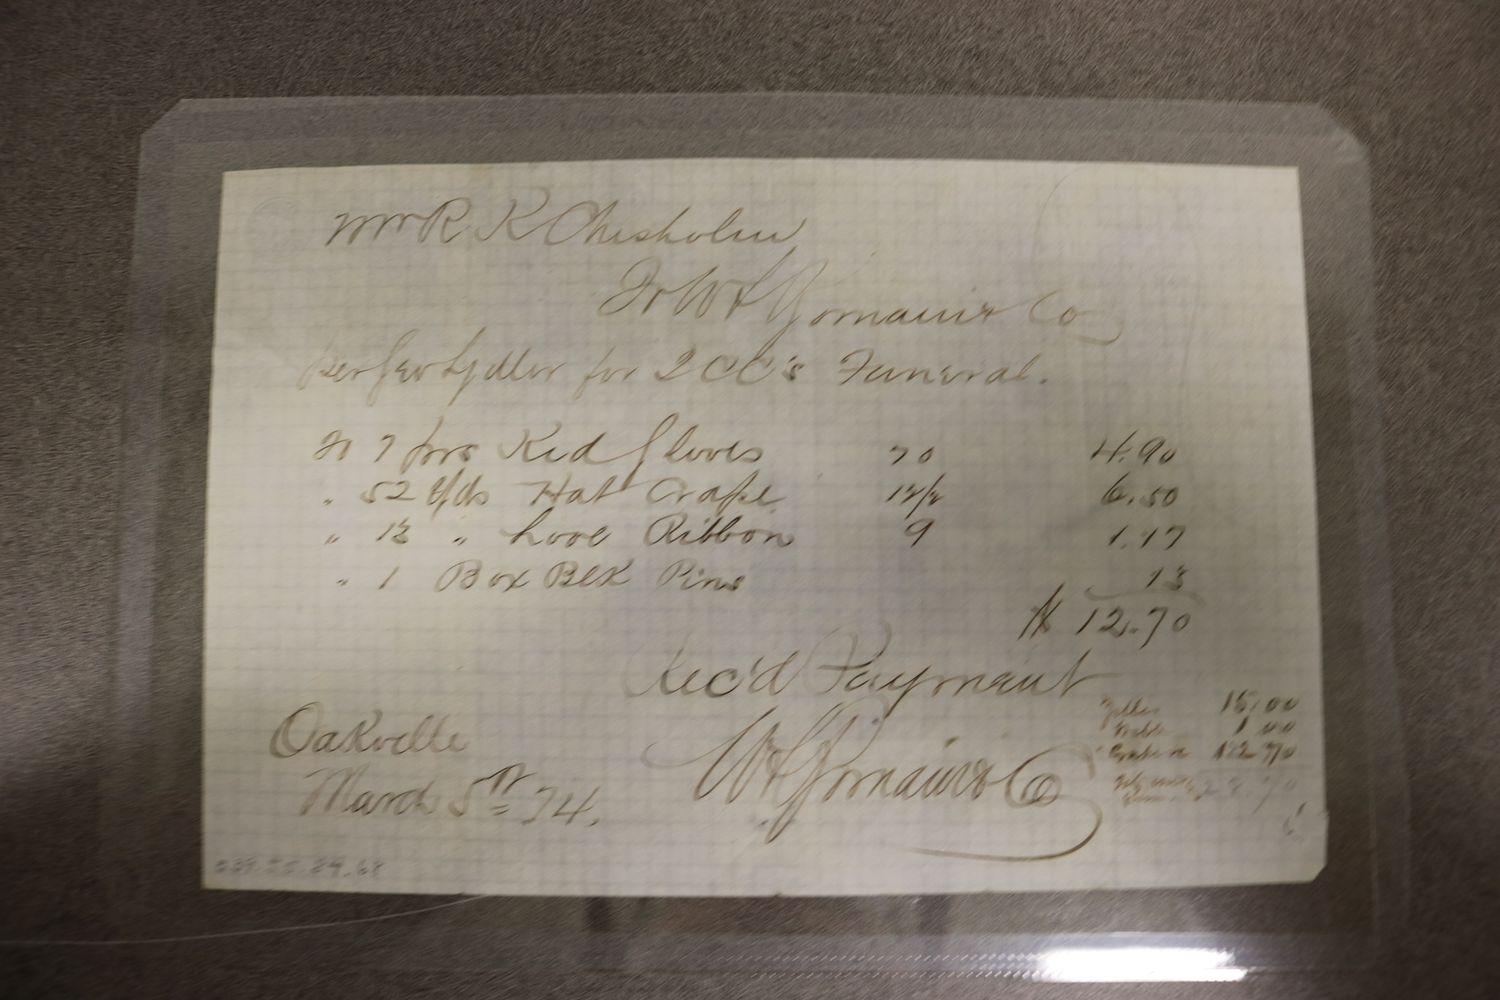 Mr R K Chisholm
To W H Romain & Co
for 2 CC's Funeral.
To 7 prs Kid Gloves 70 4.90
" 52 Yds Hat Crape 12½ 6.50
" 13 " Love Ribbon 9 1.17
" 1 Box Blk Pins 13
$ 12.70
Rec'd Payment
Oakville
March 5th 74.
15.00
1.00
12.70
28.70